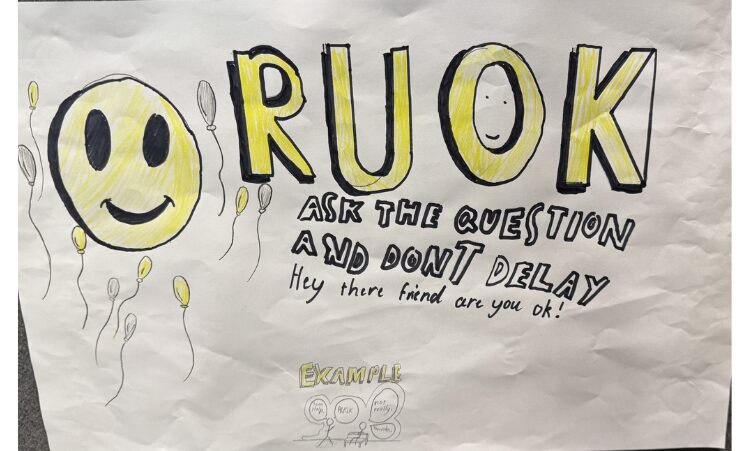 RUOK
ASK THE QUESTION
AND DONT DELAY
Hey there friend are you ok!
EXAMPLE
RUOK
not
really